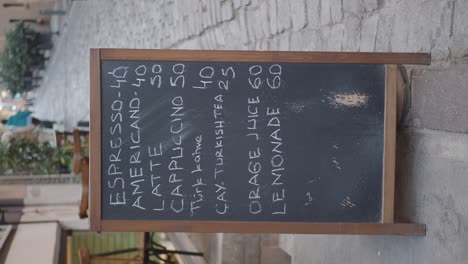 ESPRESSO - 40
AMERICANO - 40
LATTE 50
CAPPUCINO 50
Türk kahve 40
CAY. TURKISH TEA 25
ORAGE JUICE 60
LEMONADE 60